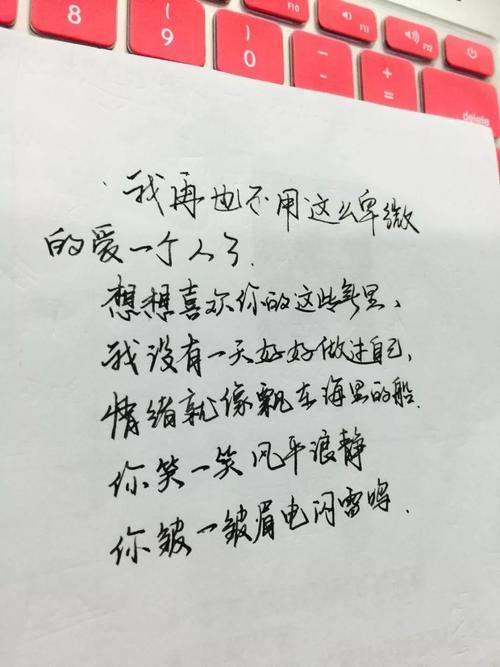 F10
F11
F12
8
9
(
0
)
-
+
=
delete
我再也不用这么卑微
的爱一个人了.
想想喜欢你的这些年里、
我没有一天好好做过自己,
情绪就像飘在海里的船.
你笑一笑风平浪静
你皱一皱眉电闪雷鸣.